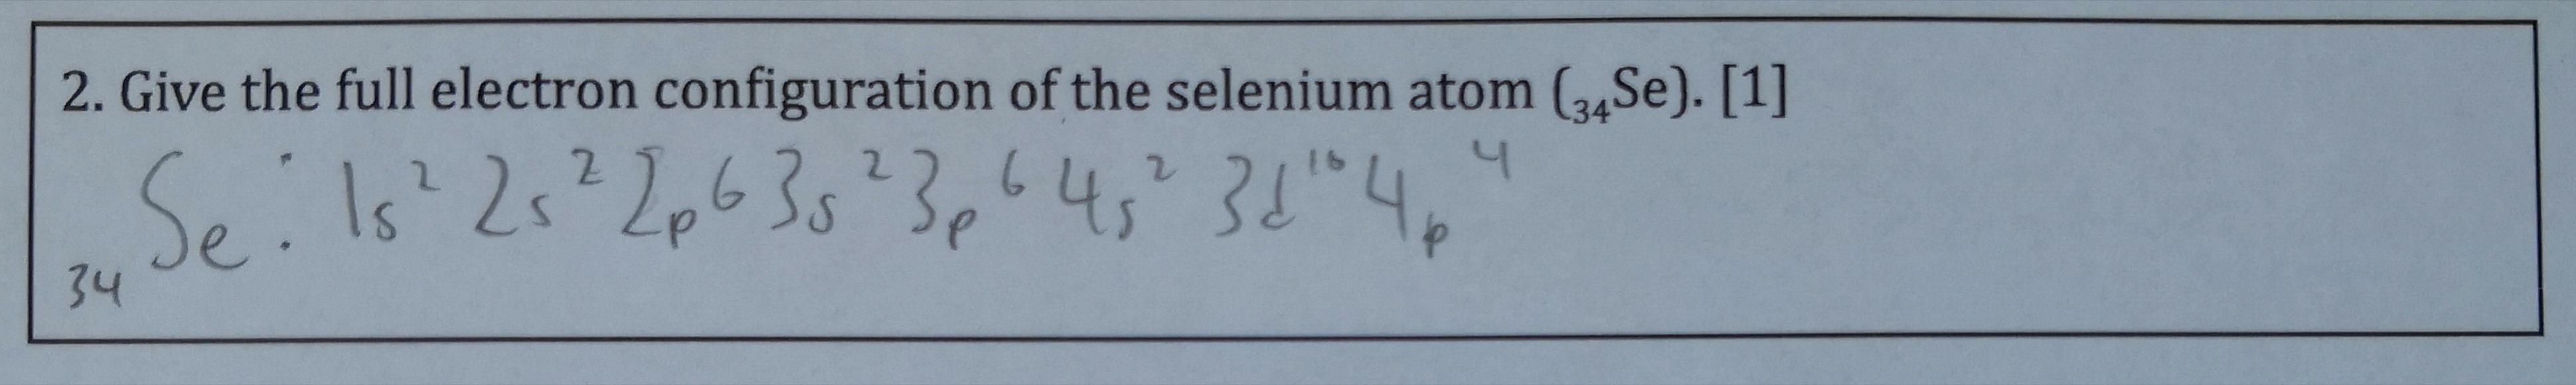 2. Give the full electron configuration of the selenium atom (₃₄Se). [1]
₃₄Se: 1s² 2s² 2p⁶ 3s² 3p⁶ 4s² 3d¹⁰ 4p⁴